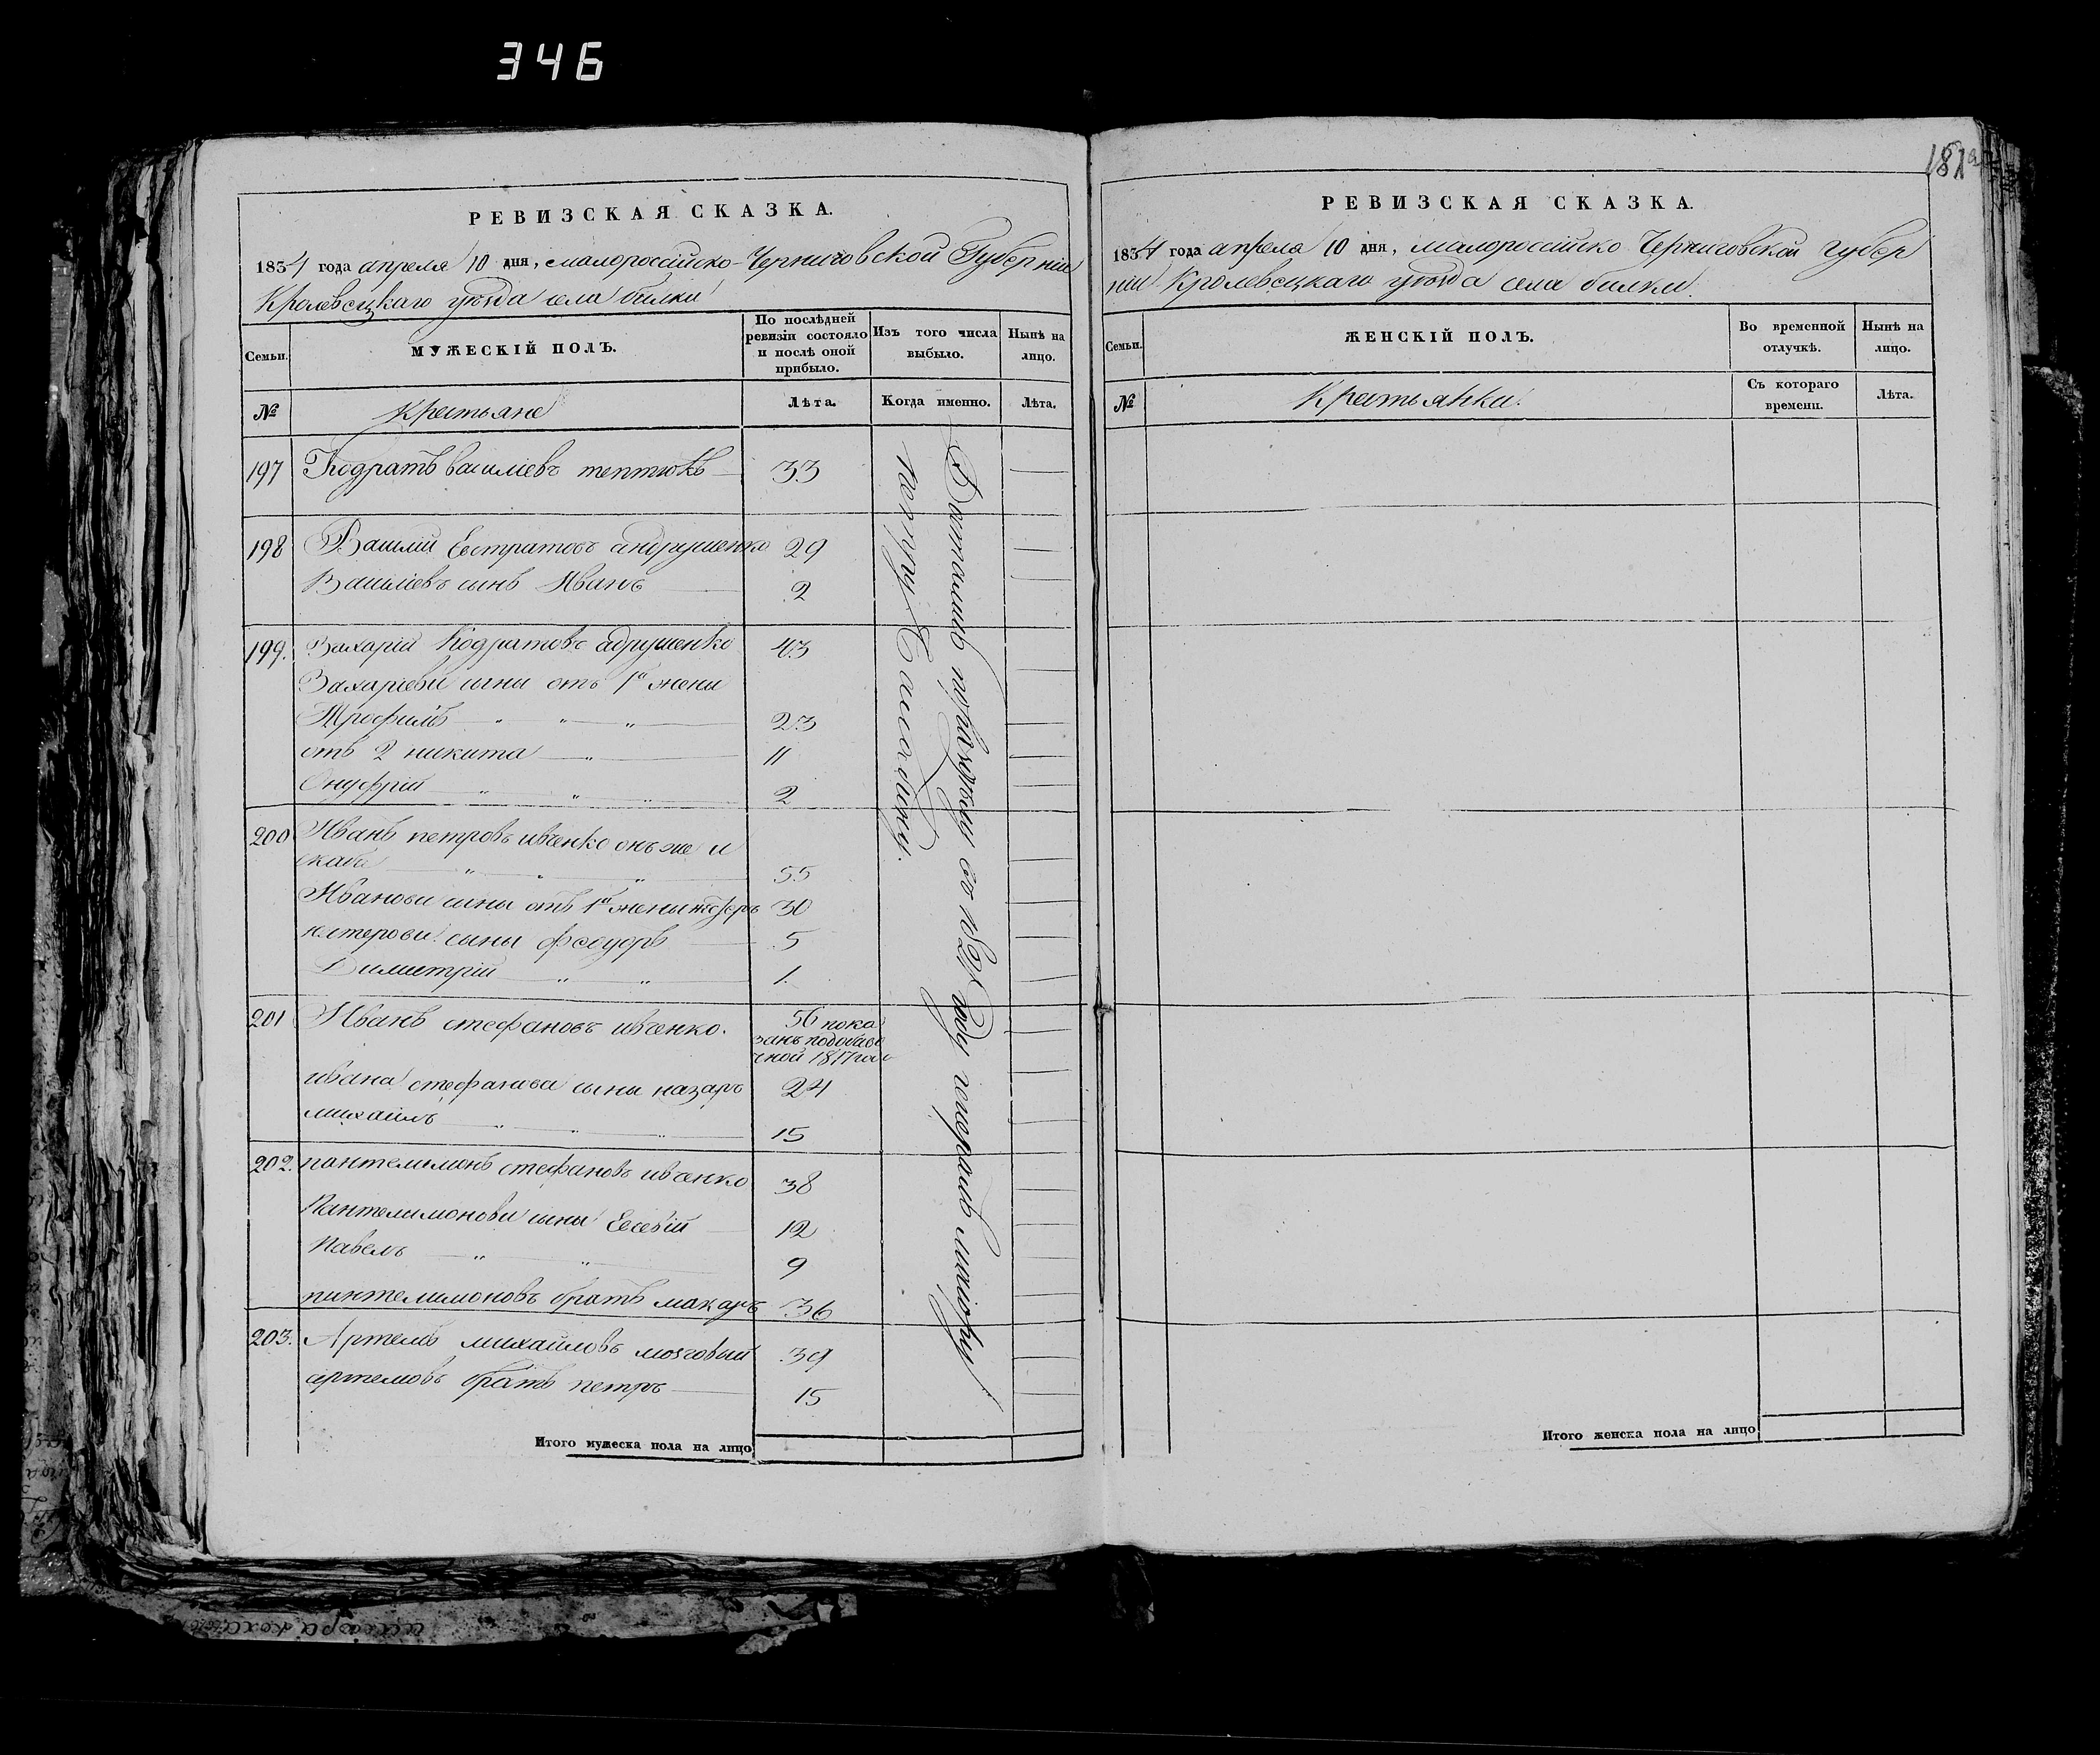 346
181а
РЕВИЗСКАЯ СКАЗКА.
1834 года апреля 10 дня, малороссійско-Черниговской Губерніи
Кролевецкаго уезда села билки
Семьи.
МУЖЕСКІЙ ПОЛЪ.
По послѣдней ревизіи состояло и послѣ оной прибыло.
Изъ того числа выбыло.
Нынѣ на лицо.
№
Крестьяне
Лѣта.
Когда именно.
Лѣта.
197 Кодратъ василіевъ тептюкъ 33
198 Василій Евстратовъ андрушенко 29
Василіевъ сынъ Иванъ 2
199. Захарій Кодратовъ адрушенко 43
Захаріеви сыни отъ 1й жени
Трофимъ " " " 23
отъ 2 никита " 11
Онуфрій " " " 2
200 Иванъ петровъ ивченко онъ же и
скаба " " " 55
Иванови сыны отъ 1й жени 30
сыны феодоръ 5
Димитрій " " 1.
201 Иванъ стефановъ ивченко. 56 пока
занъ подобаво
чной 1817 году
ивана стефанова сыны назаръ 24
михаилъ " " " 15
202. пантелимонъ стефановъ ивченко 38
Пантелимонови сыны Евсевій 12
Павелъ " " 9
пинтелимоновъ братъ макаръ 36
203. Артемъ михайловъ мозговый 39
артемовъ братъ петръ 15
Досталисъ поразделу въ 1821 году генералъ маіору
петру Бассадину.
Итого мужеска пола на лицо
РЕВИЗСКАЯ СКАЗКА.
1834 года апреля 10 дня, малоросійско Черниговской губер
ніи Кролевецкаго уезда села билки.
Семьи.
ЖЕНСКІЙ ПОЛЪ.
Во временной отлучкѣ.
Нынѣ на лицо.
№
Крестьянки.
Съ котораго времени.
Лѣта.
Итого женска пола на лицо